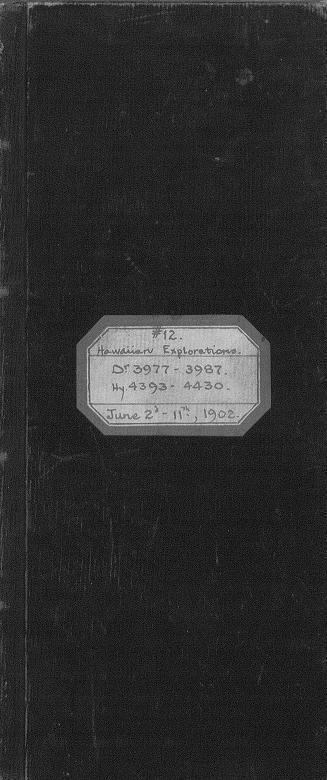 #12.
Hawaiian Explorations.
Dr 3977 - 3987.
Hy. 4393 - 4430.
June 2d - 11th, 1902.